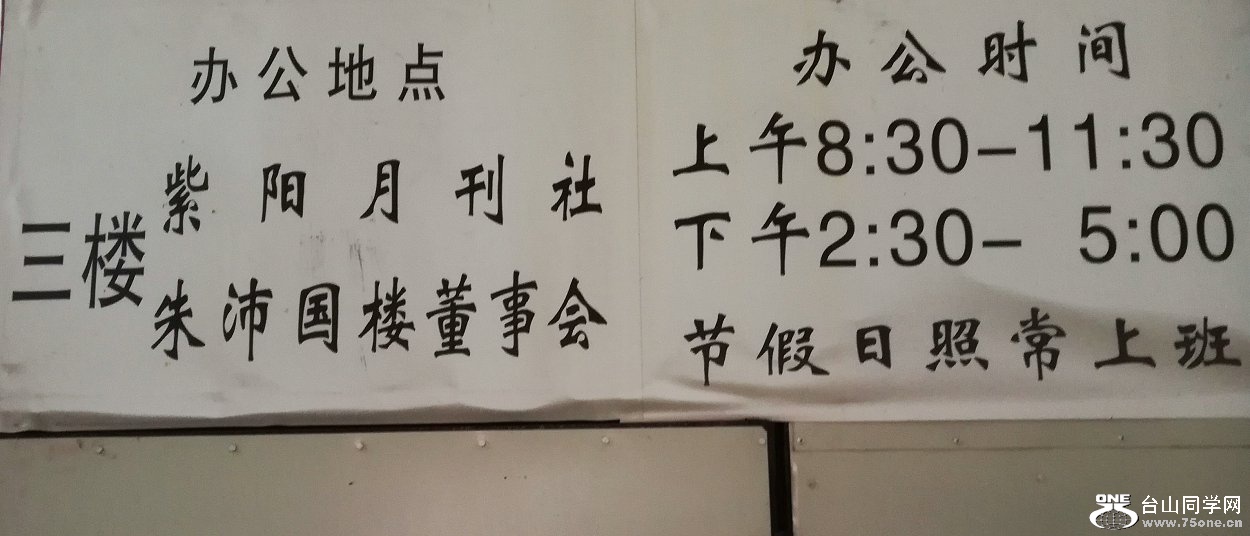 办公地点
三楼
紫阳月刊社
朱沛国楼董事会
办公时间
上午8:30-11:30
下午2:30- 5:00
节假日照常上班
ONE
台山同学网
www.75one.cn